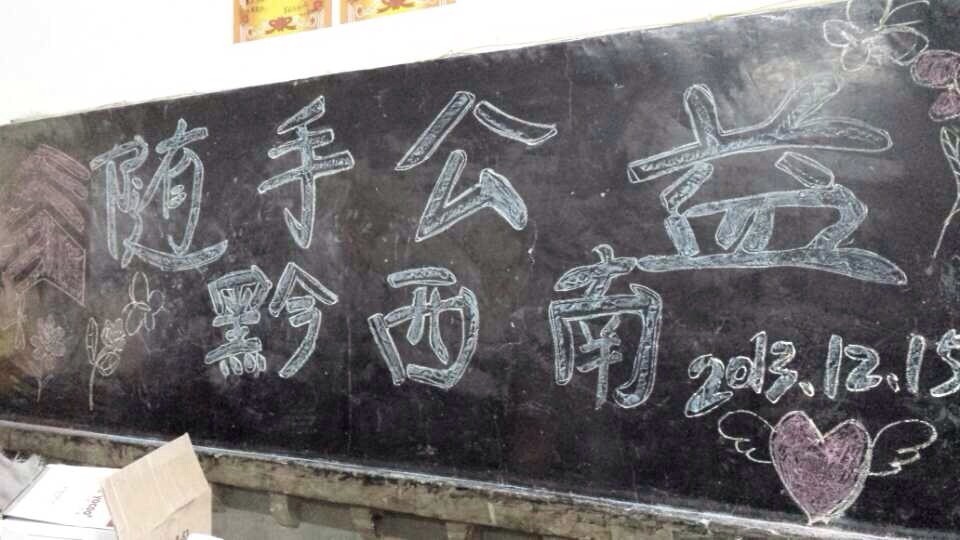 随手公益
黔西南
2013.12.15